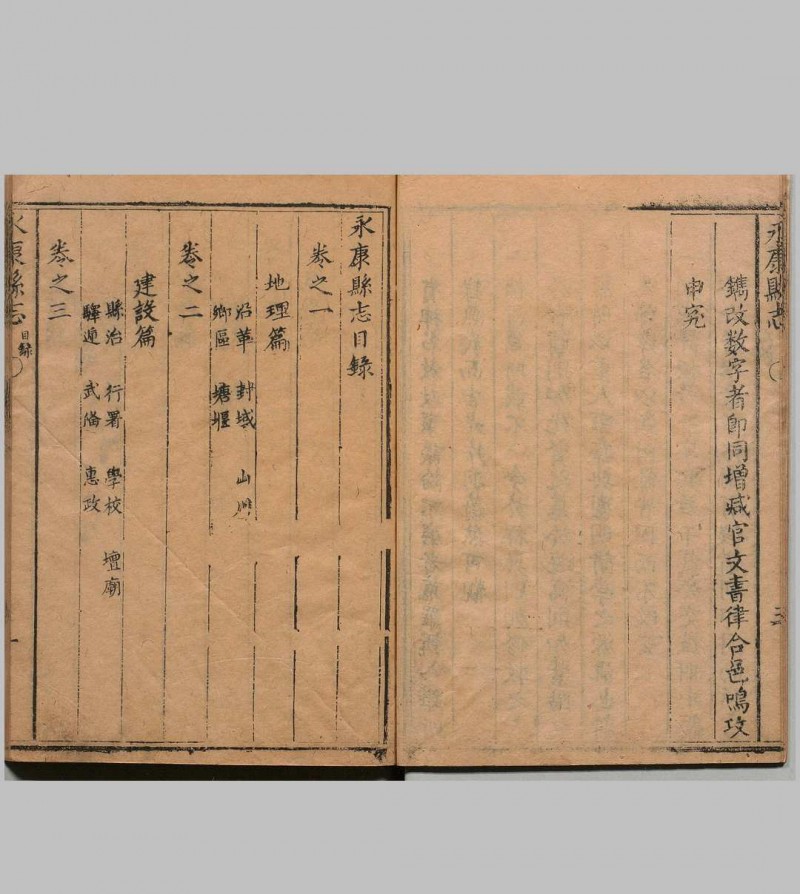 永康縣志
三
鐫改數字者即同增減官文書律合邑鳴攻
申究
永康縣志目錄
卷之一
地理篇
沿革 封域 山川
鄉區 塘堰
卷之二
建設篇
縣治 行署 學校 壇廟
驛遞 武備 惠政
卷之三
永康縣志
目錄
一